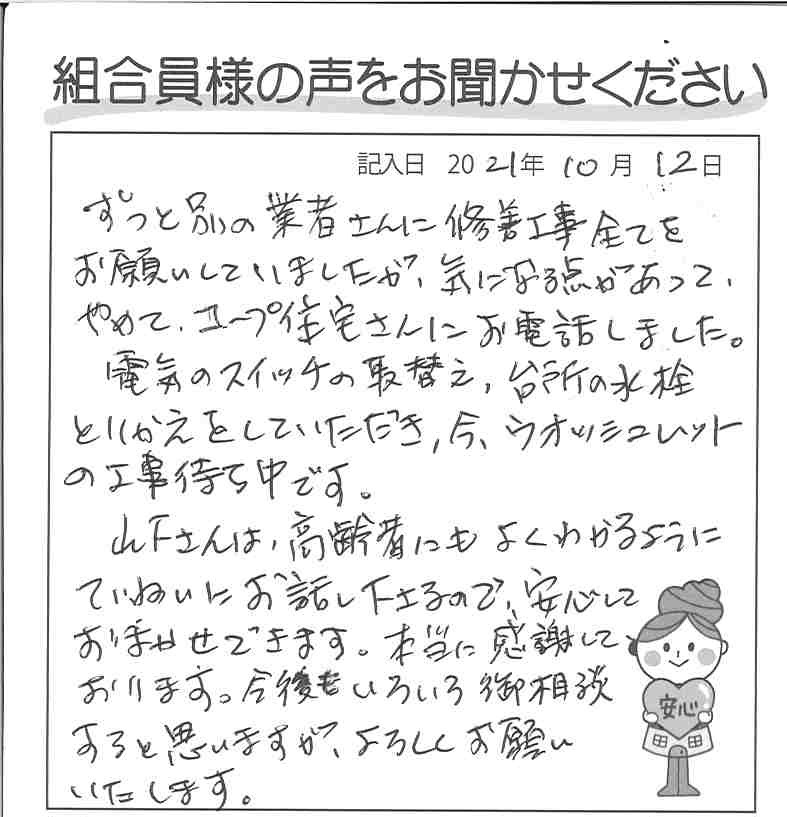 組合員様の声をお聞かせください
記入日 2021年 10月 12日
ずっと別の業者さんに修善工事全てを
お願いしていましたが、気になる点があって、
やめて、コープ住宅さんにお電話しました。
電気のスイッチの取替え、台所の水栓
とりかえをしていただき、今、ウオッシュレット
の工事待ち中です。
山下さんは、高齢者にもよくわかるように
ていねいにお話し下さるので、安心して
おまかせできます。本当に感謝して
おります。今後もいろいろ御相談
すると思いますが、よろしくお願い
いたします。
安心